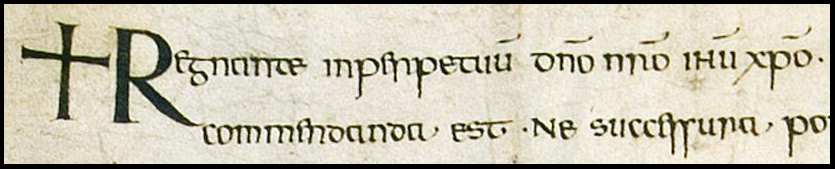 + Regnante inperpetuū dn̄o nr̄o ihū xp̄o.
commendanda, est. Ne successura, po